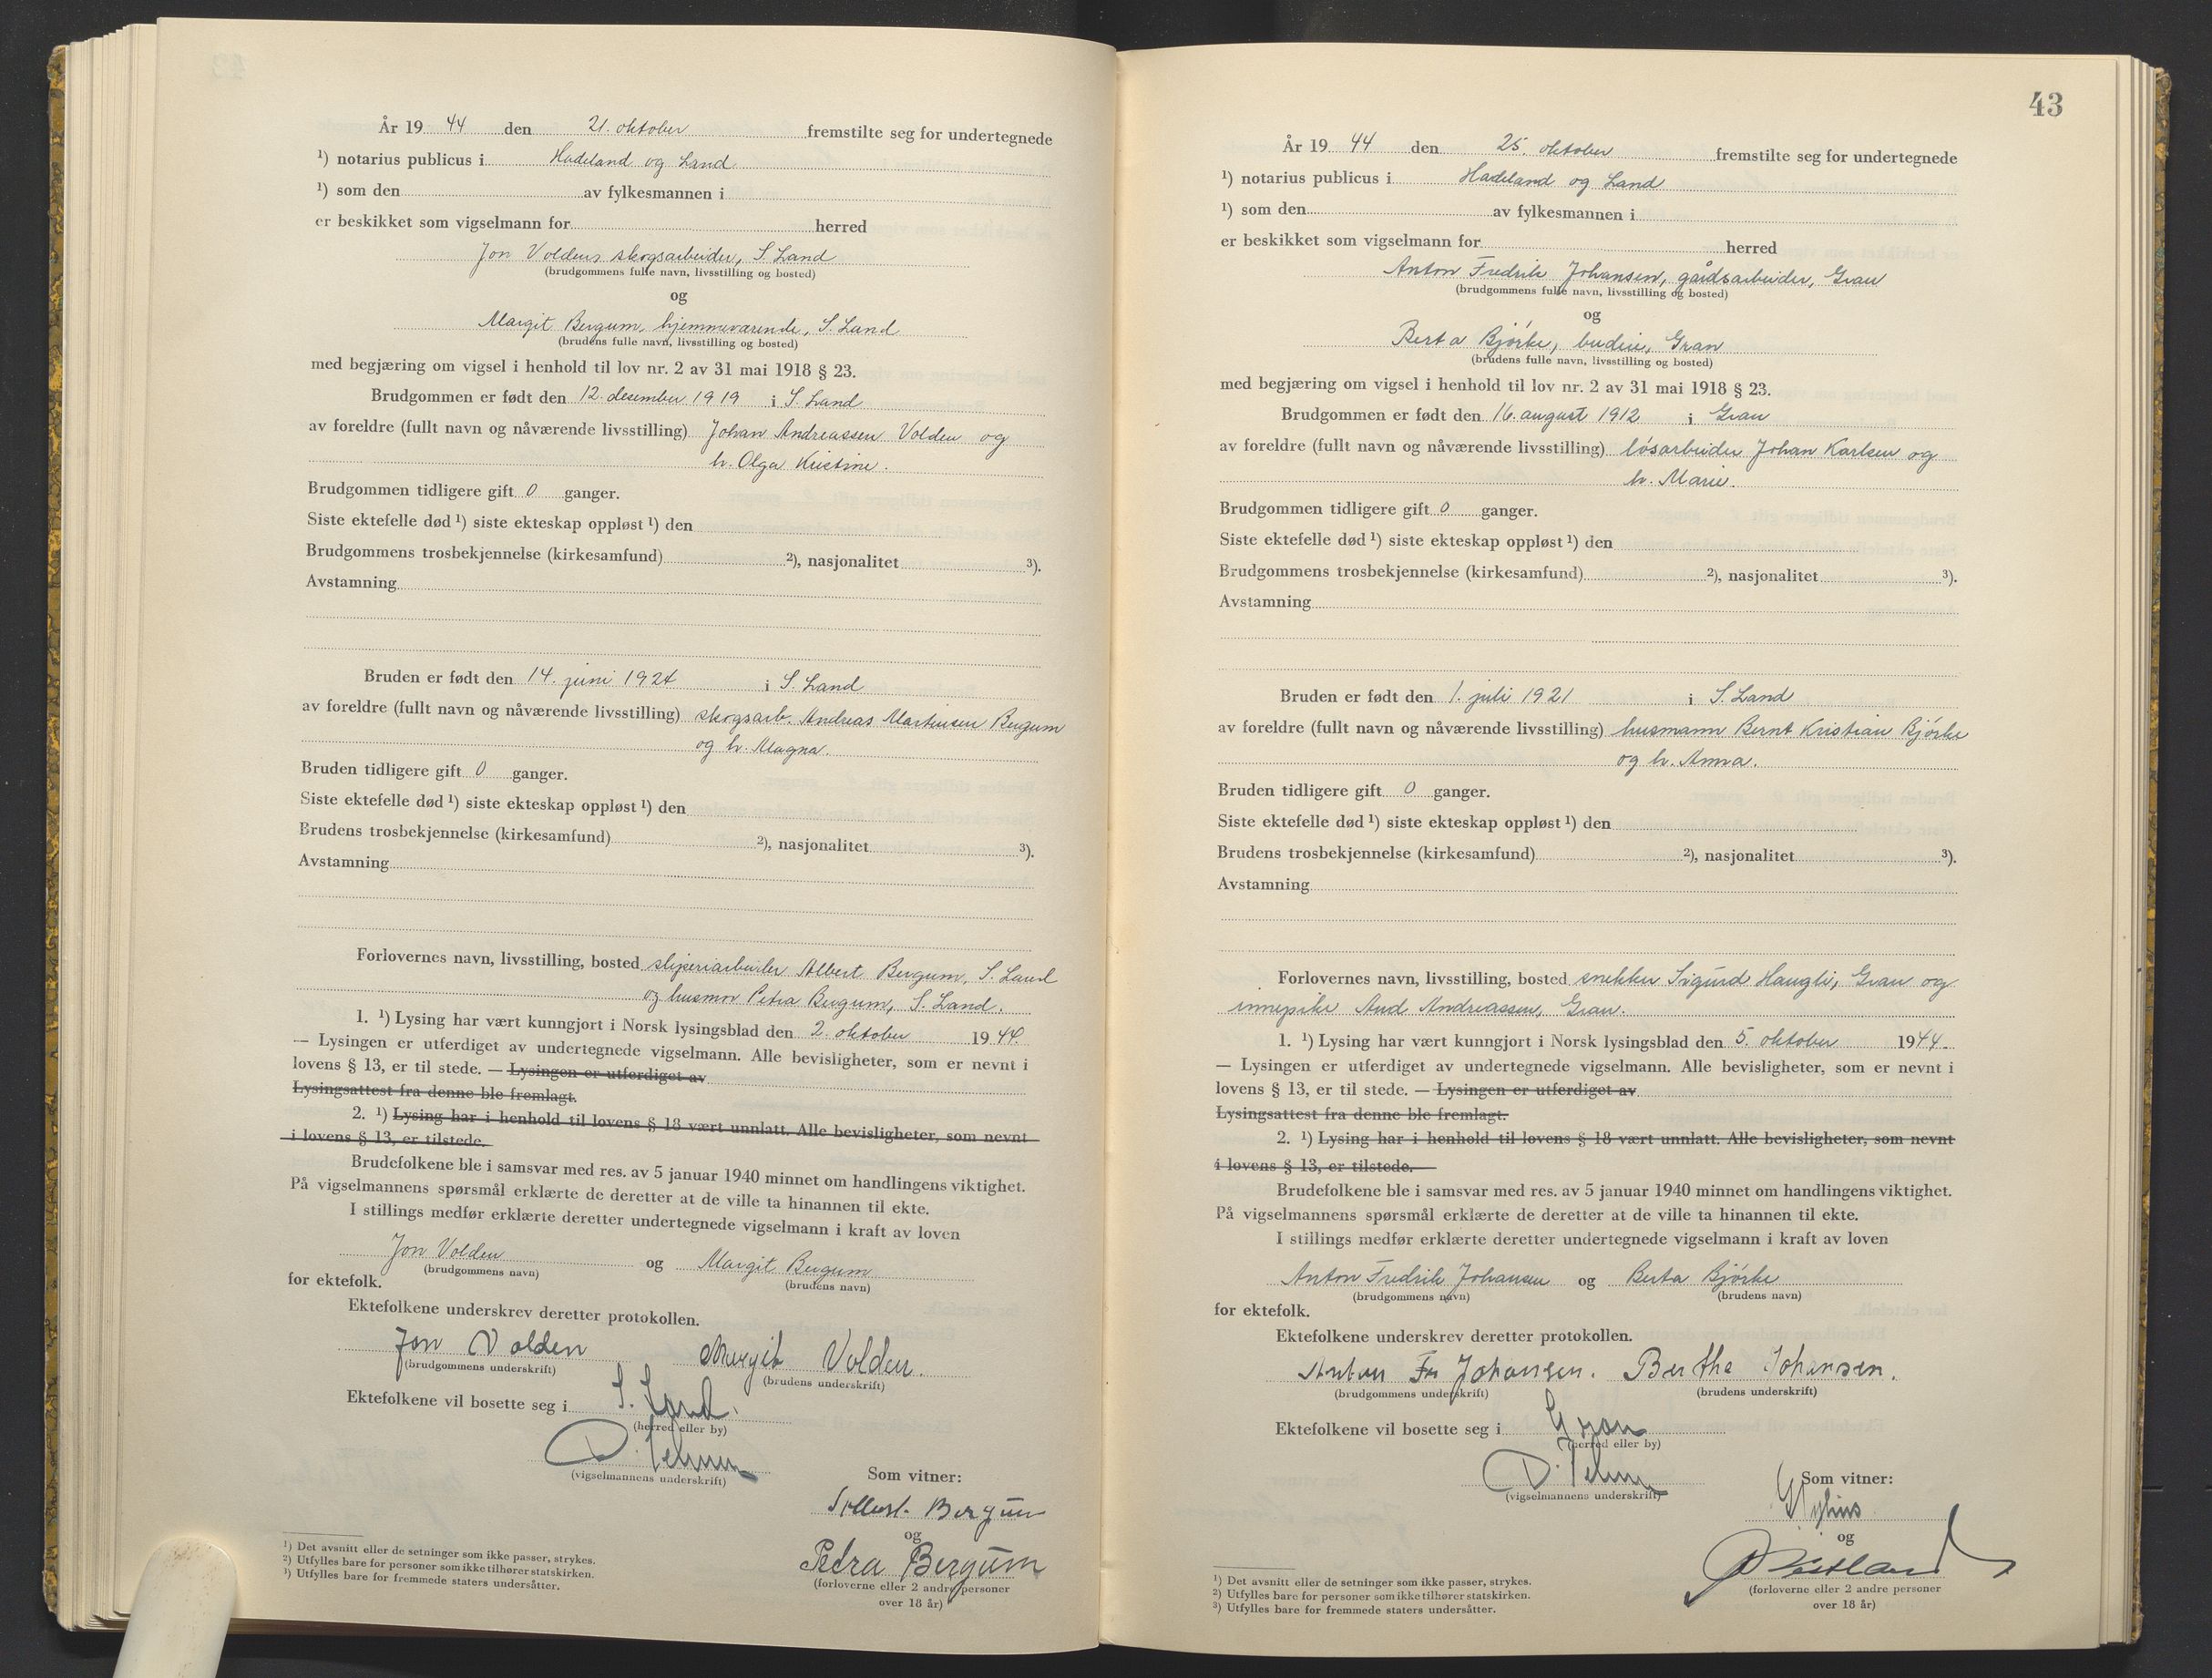 År 19 44 den 21. oktober fremstilte seg for undertegnede
¹) notarius publicus i Hadeland og Land
¹) som den av fylkesmannen i
er beskikket som vigselmann for herred
Jon Volden, skogsarbeider, S. Land
(brudgommens fulle navn, livsstilling og bosted)
og
Margit Bergum, hjemmeværende, S. Land
(brudens fulle navn, livsstilling og bosted)
med begjæring om vigsel i henhold til lov nr. 2 av 31 mai 1918 § 23.
Brudgommen er født den 12. desember 1919 i S. Land
av foreldre (fullt navn og nåværende livsstilling) Johan Andreassen Volden og
h. Olga Kristine.
Brudgommen tidligere gift 0 ganger.
Siste ektefelle død ¹) siste ekteskap oppløst ¹) den
Brudgommens trosbekjennelse (kirkesamfund) ²), nasjonalitet ³).
Avstamning
Bruden er født den 14. juni 1924 i S. Land
av foreldre (fullt navn og nåværende livsstilling) skogsarb. Andreas Martinsen Bergum
og h. Magna.
Bruden tidligere gift 0 ganger.
Siste ektefelle død ¹) siste ekteskap oppløst ¹) den
Brudens trosbekjennelse (kirkesamfund) ²), nasjonalitet ³).
Avstamning
Forlovernes navn, livsstilling, bosted sliperiarbeider Albert Bergum, S. Land
og husmor Petra Bergum, S. Land.
1. ¹) Lysing har vært kunngjort i Norsk lysingsblad den 2. oktober 19 44.
— Lysingen er utferdiget av undertegnede vigselmann. Alle bevisligheter, som er nevnt i
lovens § 13, er til stede. — Lysingen er utferdiget av
Lysingsattest fra denne ble fremlagt.
2. ¹) Lysing har i henhold til lovens § 18 vært unnlatt. Alle bevisligheter, som nevnt
i lovens § 13, er tilstede.
Brudefolkene ble i samsvar med res. av 5 januar 1940 minnet om handlingens viktighet.
På vigselmannens spørsmål erklærte de deretter at de ville ta hinannen til ekte.
I stillings medfør erklærte deretter undertegnede vigselmann i kraft av loven
Jon Volden og Margit Bergum
(brudgommens navn) (brudens navn)
for ektefolk.
Ektefolkene underskrev deretter protokollen.
Jon Volden Margit Volden.
(brudgommens underskrift) (brudens underskrift)
Ektefolkene vil bosette seg i S. Land.
(herred eller by)
(vigselmannens underskrift)
Som vitner:
Albert Bergum
og
Petra Bergum
(forloverne eller 2 andre personer
over 18 år)
¹) Det avsnitt eller de setninger som ikke passer, strykes.
²) Utfylles bare for personer som ikke tilhører statskirken.
³) Utfylles bare for fremmede staters undersåtter.
43
År 19 44 den 25. oktober fremstilte seg for undertegnede
¹) notarius publicus i Hadeland og Land
¹) som den av fylkesmannen i
er beskikket som vigselmann for herred
Anton Fredrik Johansen, gårdsarbeider, Gran
(brudgommens fulle navn, livsstilling og bosted)
og
Berta Bjørke, budeie, Gran
(brudens fulle navn, livsstilling og bosted)
med begjæring om vigsel i henhold til lov nr. 2 av 31 mai 1918 § 23.
Brudgommen er født den 16. august 1912 i Gran
av foreldre (fullt navn og nåværende livsstilling) løsarbeider Johan Karlsen og
h. Marie.
Brudgommen tidligere gift 0 ganger.
Siste ektefelle død ¹) siste ekteskap oppløst ¹) den
Brudgommens trosbekjennelse (kirkesamfund) ²), nasjonalitet ³).
Avstamning
Bruden er født den 1. juli 1921 i S. Land
av foreldre (fullt navn og nåværende livsstilling) husmann Bernt Kristian Bjørke
og h. Anna.
Bruden tidligere gift 0 ganger.
Siste ektefelle død ¹) siste ekteskap oppløst ¹) den
Brudens trosbekjennelse (kirkesamfund) ²), nasjonalitet ³).
Avstamning
Forlovernes navn, livsstilling, bosted snekker Sigurd Haugli, Gran og
innepike Aud Andreassen, Gran.
1. ¹) Lysing har vært kunngjort i Norsk lysingsblad den 5. oktober 1944.
— Lysingen er utferdiget av undertegnede vigselmann. Alle bevisligheter, som er nevnt i
lovens § 13, er til stede. — Lysingen er utferdiget av
Lysingsattest fra denne ble fremlagt.
2. ¹) Lysing har i henhold til lovens § 18 vært unnlatt. Alle bevisligheter, som nevnt
i lovens § 13, er tilstede.
Brudefolkene ble i samsvar med res. av 5 januar 1940 minnet om handlingens viktighet.
På vigselmannens spørsmål erklærte de deretter at de ville ta hinannen til ekte.
I stillings medfør erklærte deretter undertegnede vigselmann i kraft av loven
Anton Fredrik Johansen og Berta Bjørke
(brudgommens navn) (brudens navn)
for ektefolk.
Ektefolkene underskrev deretter protokollen.
Anton Fr Johansen. Bertha Johansen.
(brudgommens underskrift) (brudens underskrift)
Ektefolkene vil bosette seg i Gran
(herred eller by)
(vigselmannens underskrift)
Som vitner:
og
(forloverne eller 2 andre personer
over 18 år)
¹) Det avsnitt eller de setninger som ikke passer, strykes.
²) Utfylles bare for personer som ikke tilhører statskirken.
³) Utfylles bare for fremmede staters undersåtter.